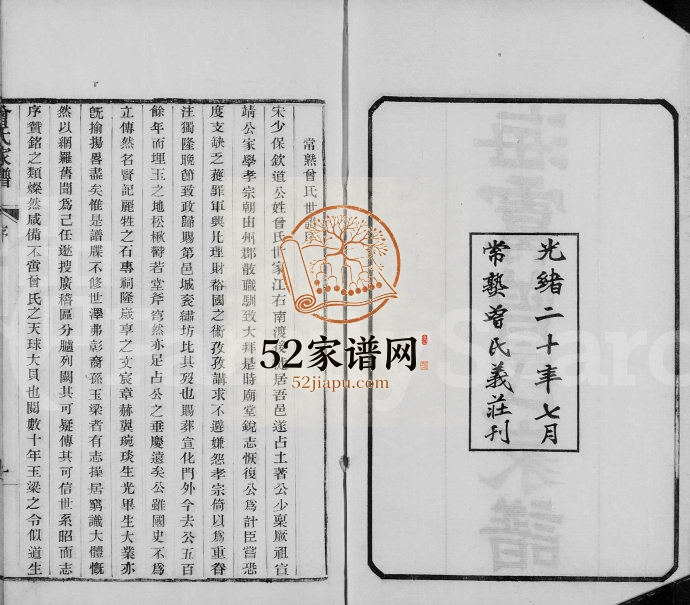 光緒二十年七月
常熟曾氏義莊刊
常熟曾氏世譜序
宋少保欽道公姓曾氏世家江右南渡後居吾邑遂占土著公少稟厥祖宣
靖公家學孝宗朝由州郡散職馴致大拜是時廟堂銳志恢復公為計臣當恐
度支缺乏獲罪軍興凡理財裕國之術孜孜講求不避嫌怨孝宗倚以為重眷
注獨隆晚節致政歸賜第邑城袞繡坊比其歿也賜葬宣化門外今去公五百
餘年而埋玉之地松楸鬱若堂斧穹然亦足占公之垂慶遠矣公雖國史不為
立傳然名賢記麗牲之石專祠隆歲享之文宸章赫奕琬琰生光畢生大業亦
既揄揚畧盡矣惟是譜牒不修世澤弗彰裔孫玉梁者有志操居窮識大體慨
然以網羅舊聞為己任遂搜廣稽區分臚列闕其可疑傳其可信世系昭而志
序贊銘之類燦然咸備不啻曾氏之天球大貝也閱數十年玉梁之令似道生
曾氏家譜
序
一
52家谱网
52jiapu.com